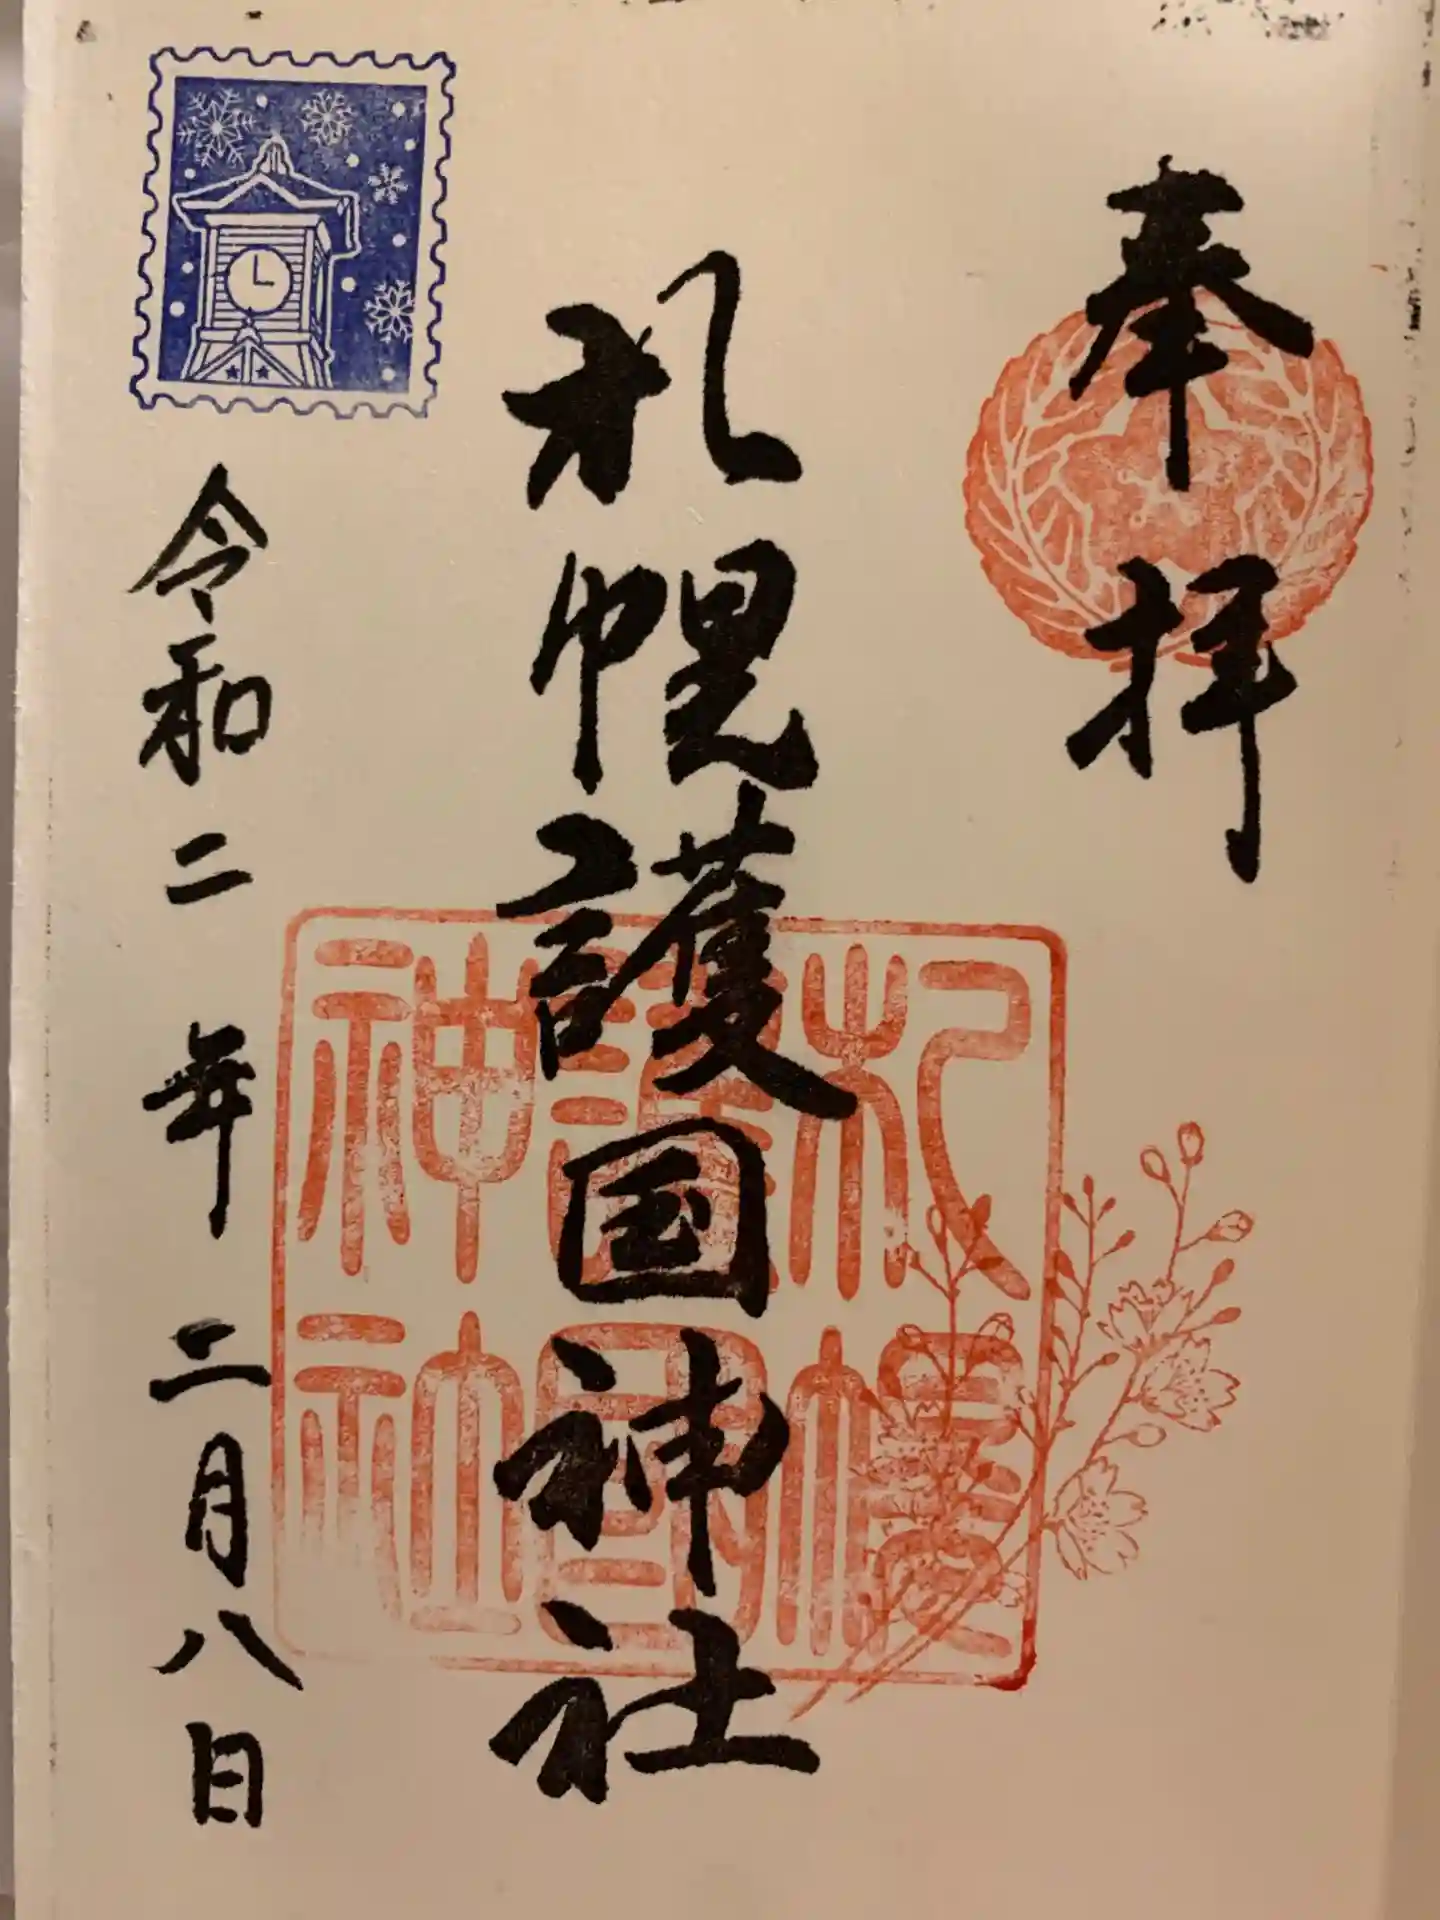 奉拝
札幌護国神社
札幌
護國
神社
令和二年二月八日